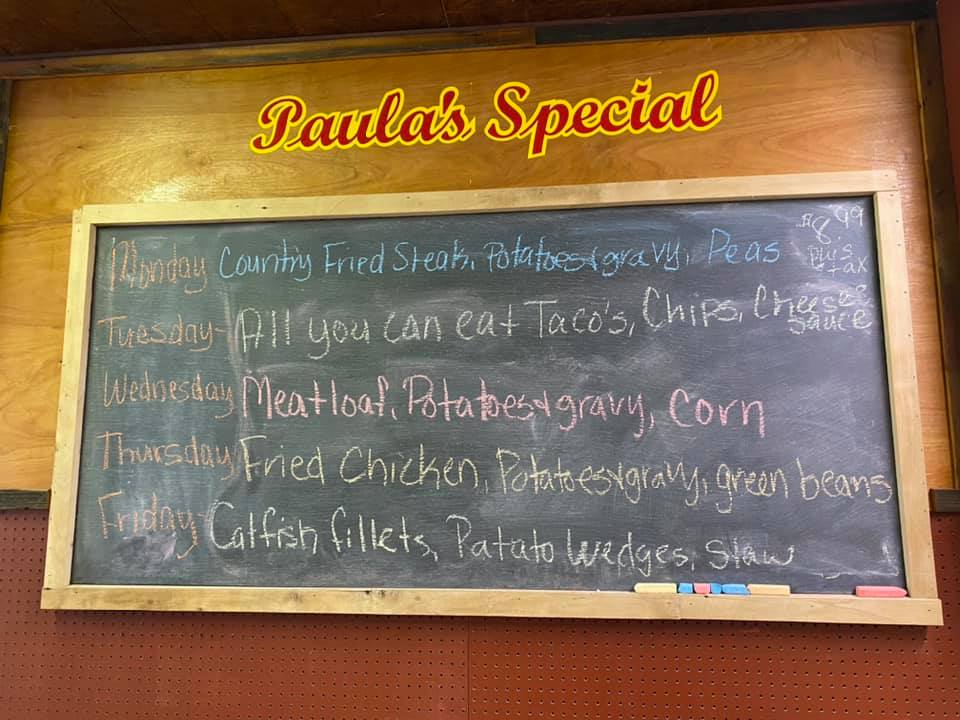 Paula's Special
$8.99
plus tax
Monday Country Fried Steak, Potatoes & gravy, Peas
Tuesday- All you can eat Taco's, Chips, Cheese sauce
Wednesday Meatloaf, Potatoes & gravy, Corn
Thursday Fried Chicken, Potatoes & gravy, green beans
Friday- Catfish fillets, Patato wedges, slaw